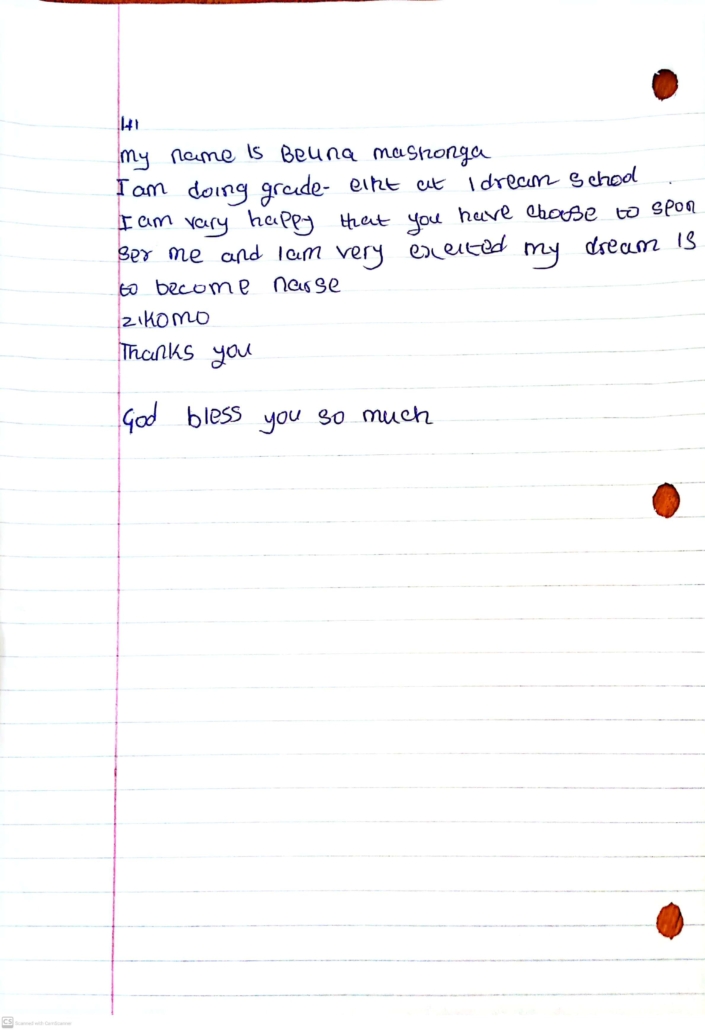 HI
My name Is Beuna mashonga
I am doing grade- eiht at I dream school.
I am vary happy that you have choose to spon
ser me and I am very exeited my dream is
to become narse
ZIKOMO
Thanks you
God bless you so much
CS Scanned with CamScanner